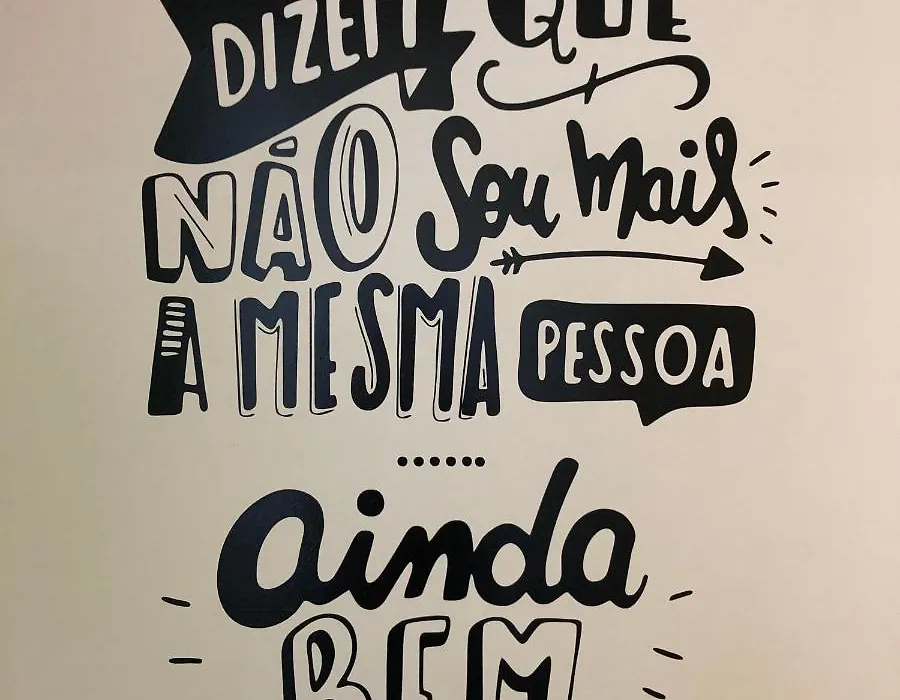 DIZEM QUE
NÃO Sou Mais
A MESMA PESSOA
Ainda
BEM